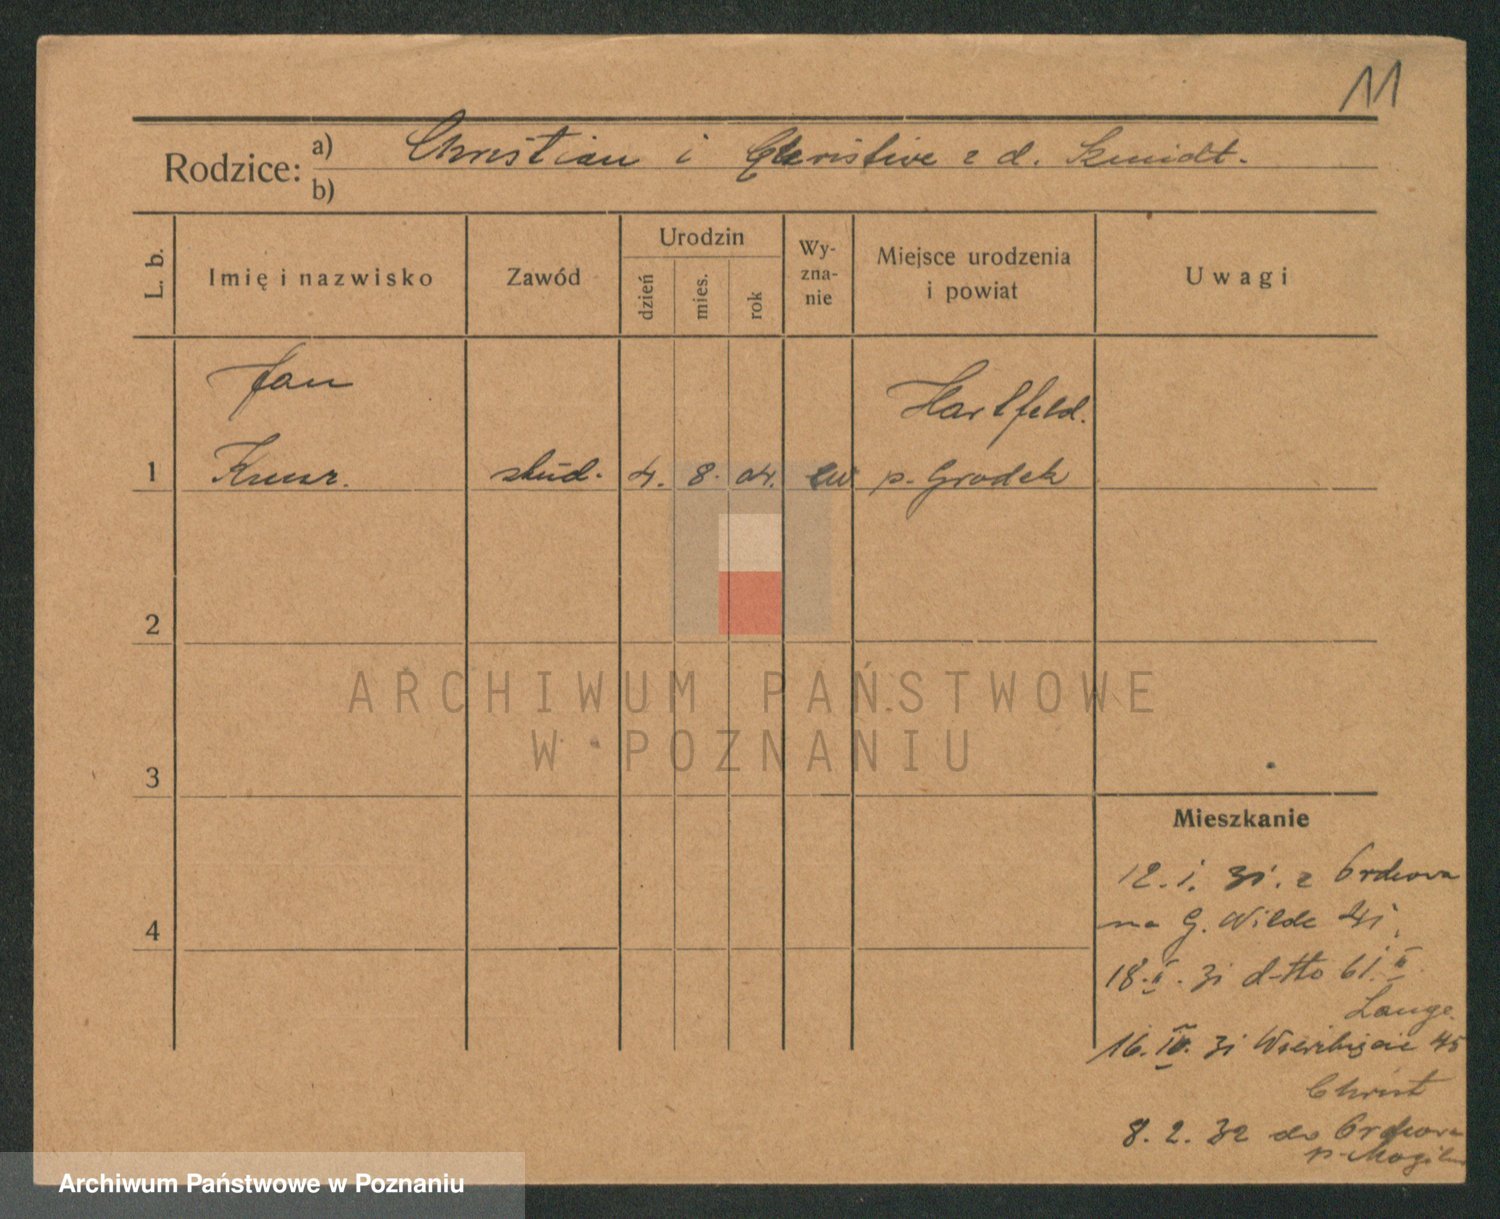 11
Rodzice: a) Christian i Christine z d. Szmidt.
b)
L. b.
Imię i nazwisko
Zawód
Urodzin
dzień
mies.
rok
Wy-
zna-
nie
Miejsce urodzenia
i powiat
Uwagi
Jan
Hartfeld.
1 stud. 4. 8. 04. ew p. Grodek
2
3
4
ARCHIWUM PAŃSTWOWE
W POZNANIU
Mieszkanie
12. I. 31. z
na G. Wilde 41.
18. II. 31 d-tto 61. II
Lange.
16. IV. 31 45
Christ
8. 2. 32 do
p. Mogilno
Archiwum Państwowe w Poznaniu